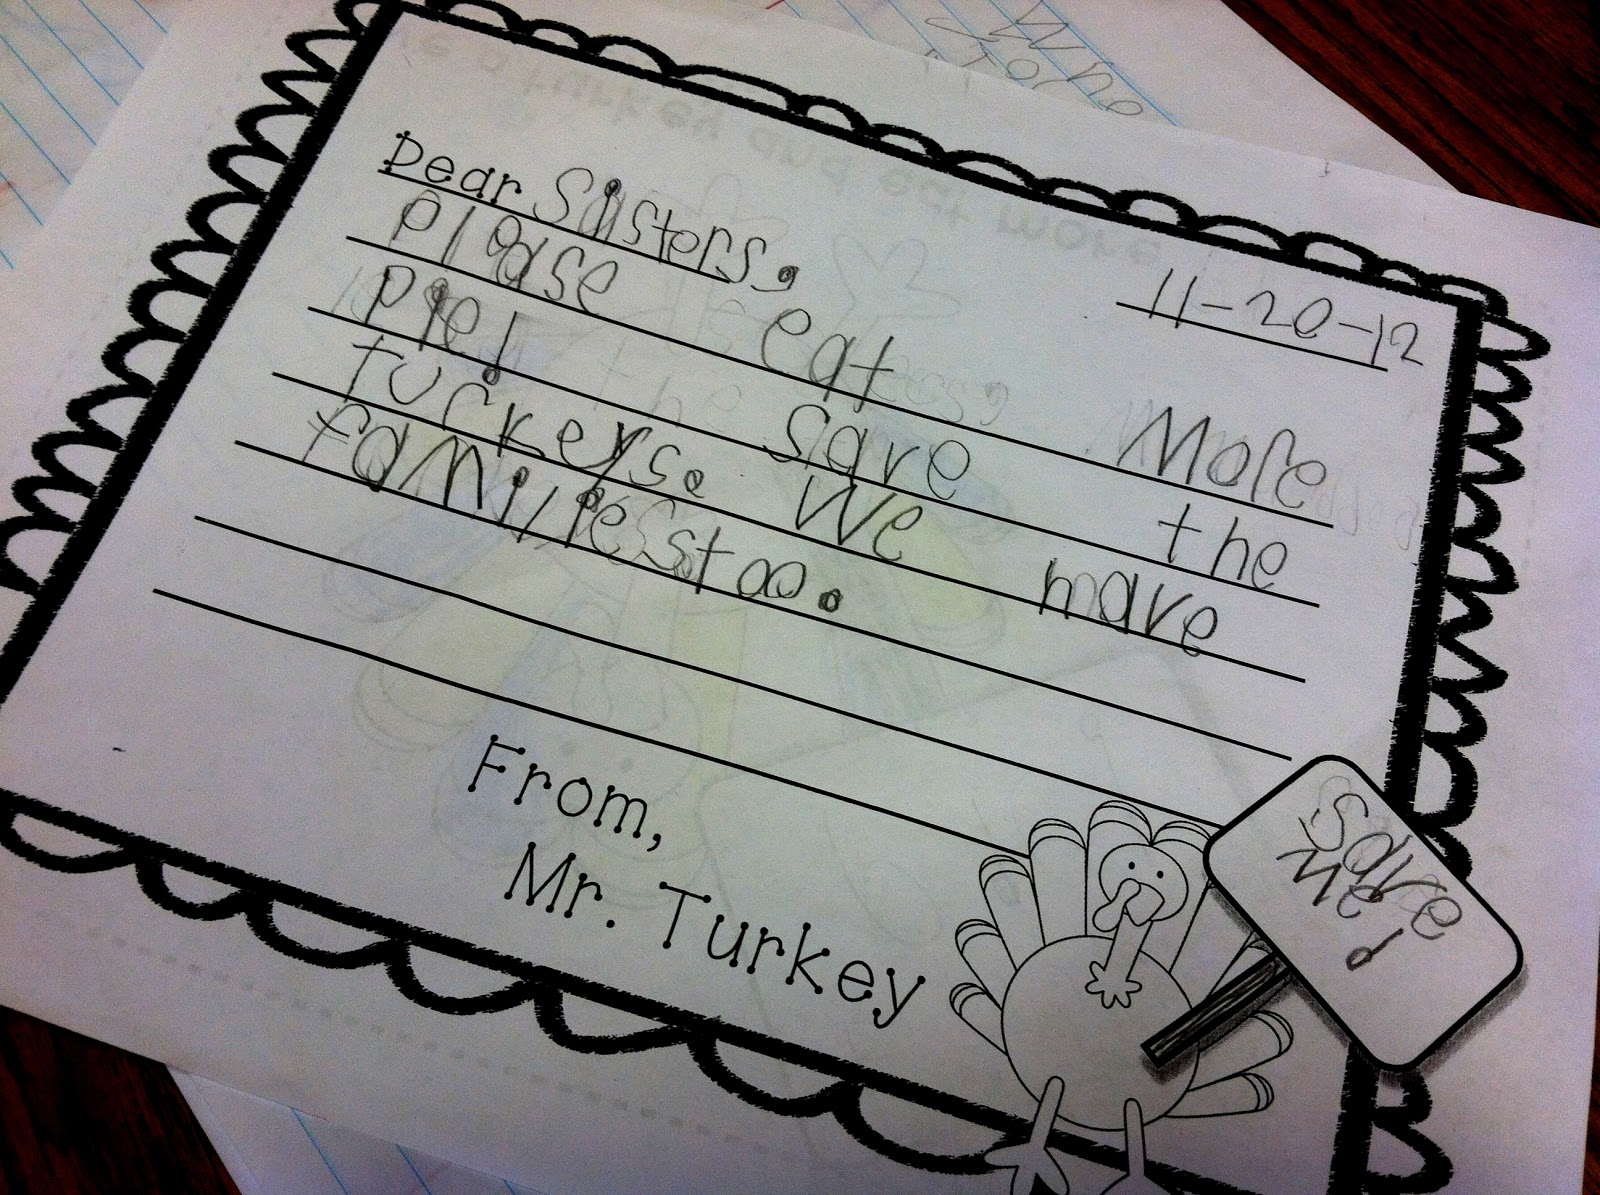 Dear Sisters,
11-20-12
please eat More
pie! Save the
turkeys. We mave
families too.
From,
Mr. Turkey
save
Me!